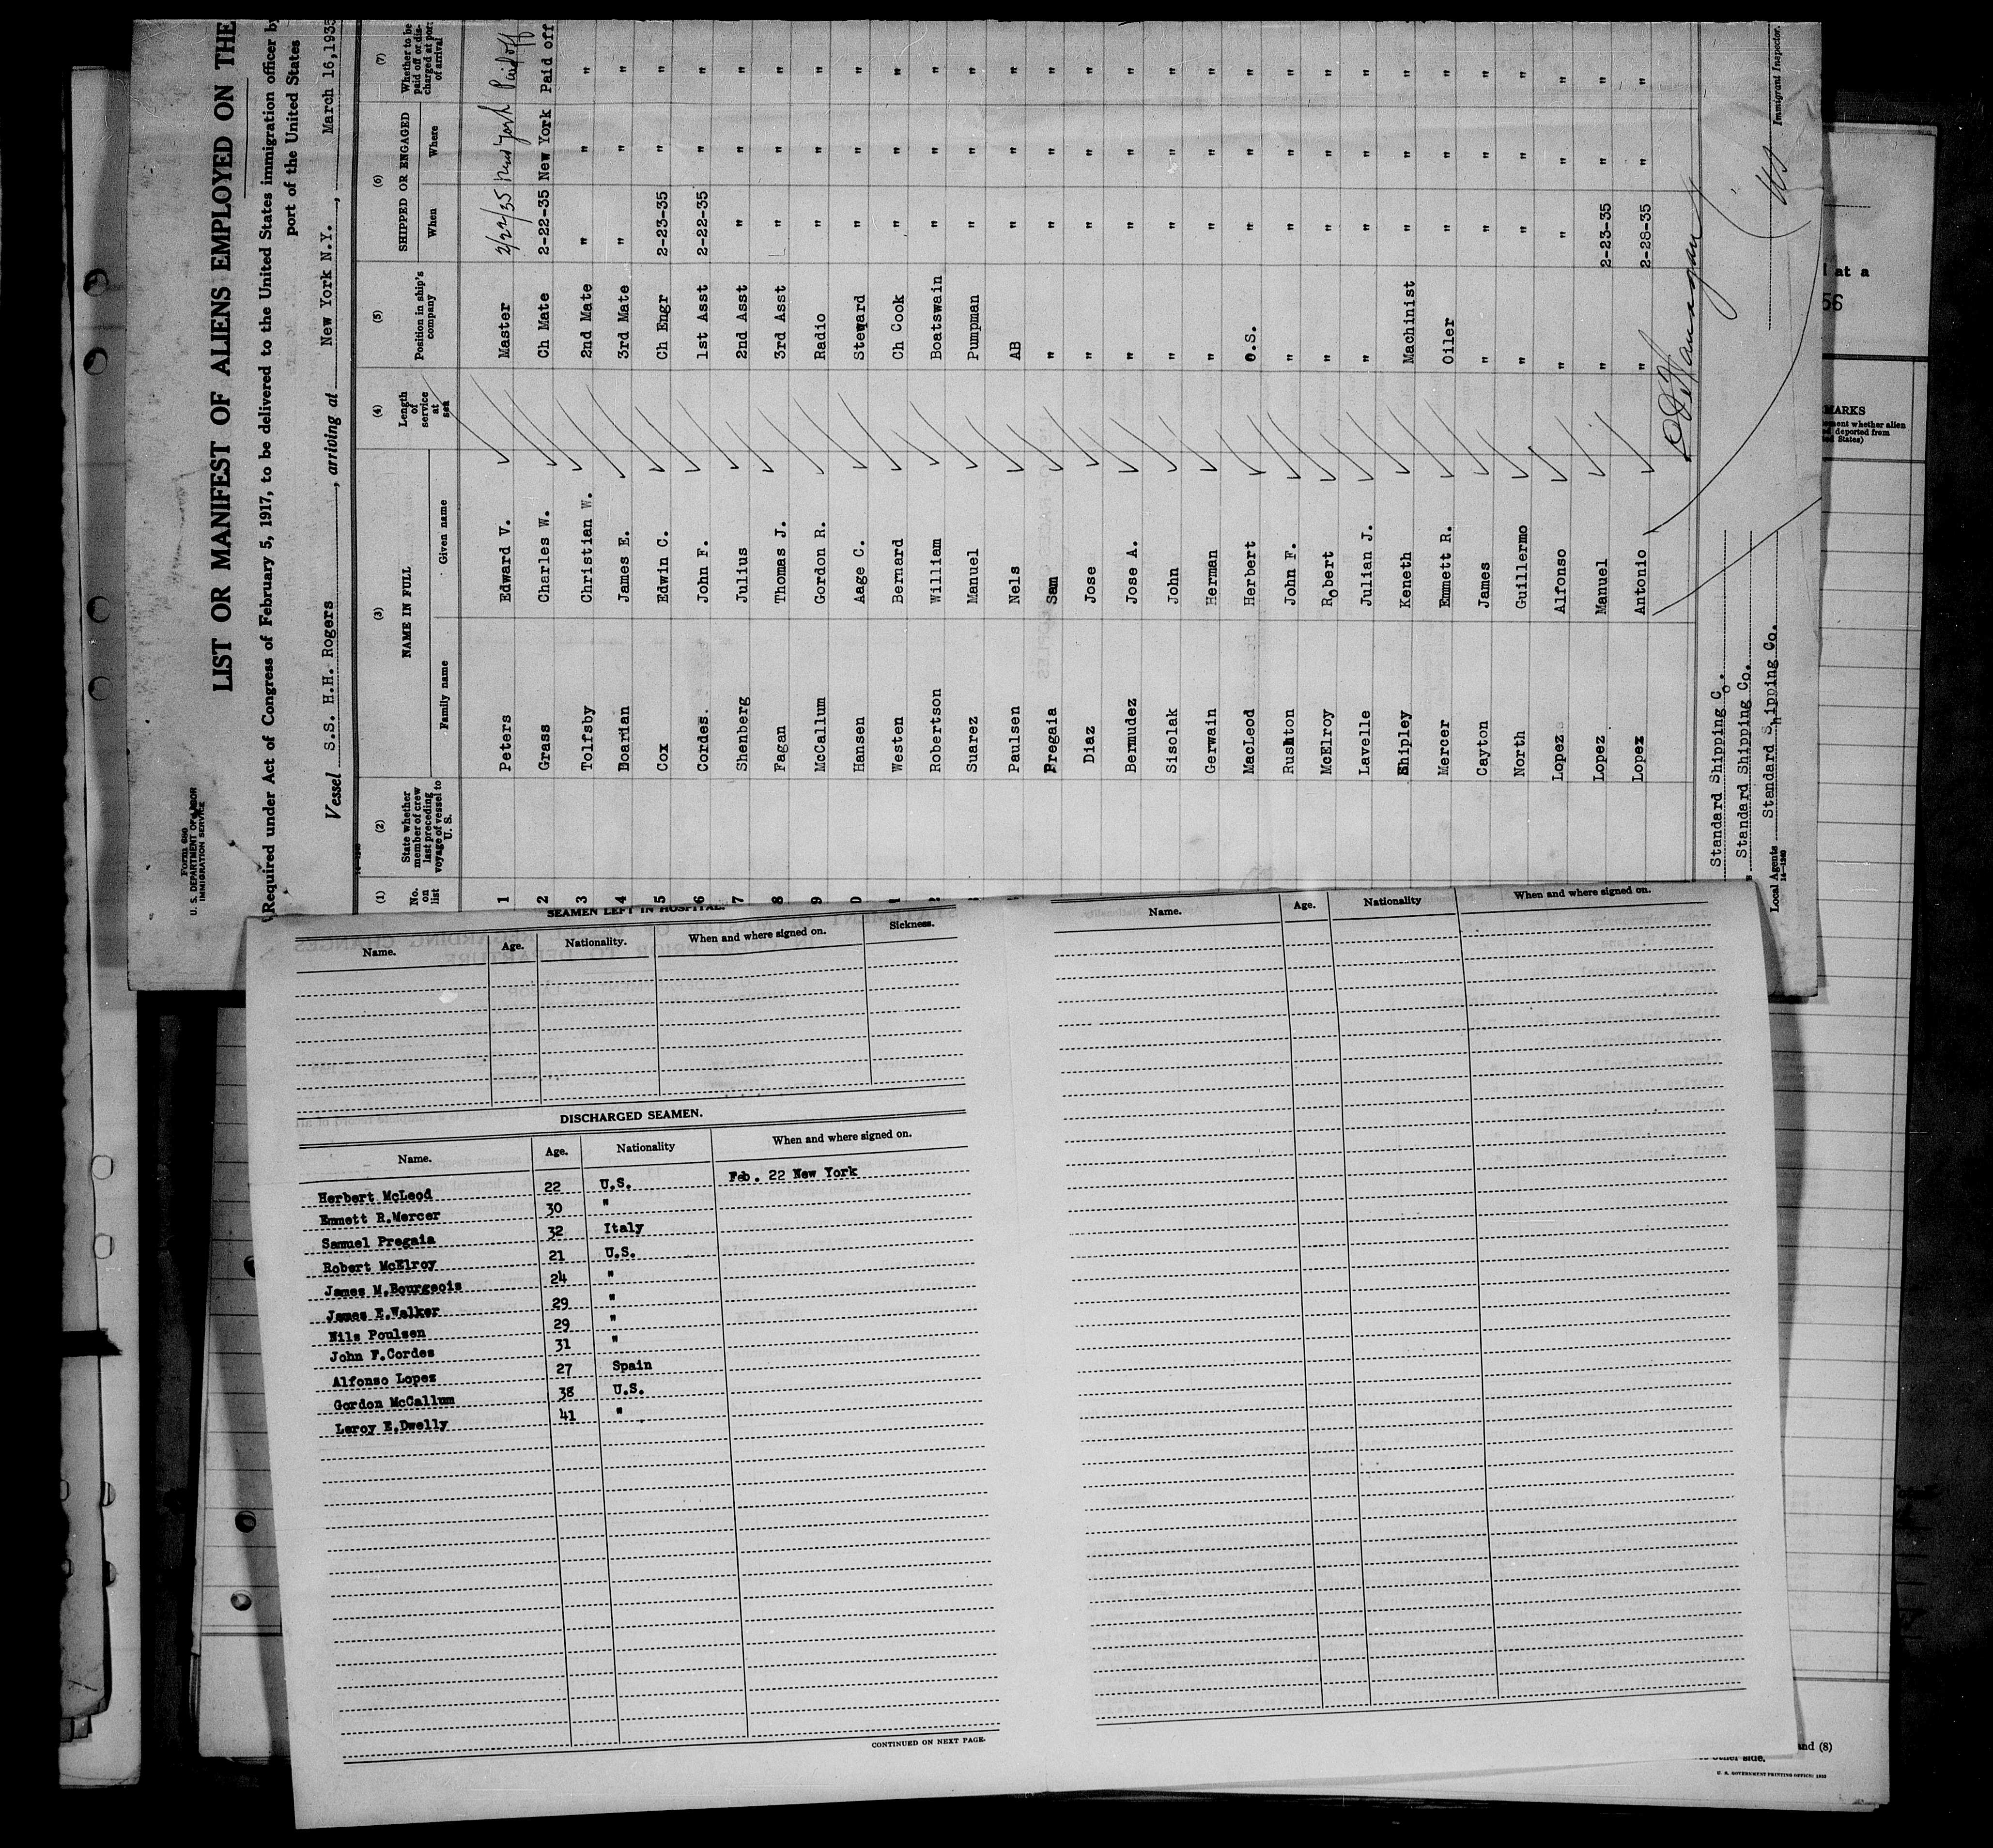 Form 680
U. S. DEPARTMENT OF LABOR
IMMIGRATION SERVICE
LIST OR MANIFEST OF ALIENS EMPLOYED ON THE
Required under Act of Congress of February 5, 1917, to be delivered to the United States immigration officer by
port of the United States
Vessel S.S. H.H. Rogers, arriving at New York N.Y., March 16, 1935
(1) (2) (3) (4) (5) (6) (7)
No. on list State whether member of crew last preceding voyage of vessel to U. S. NAME IN FULL Length of service at sea Position in ship's company SHIPPED OR ENGAGED Whether to be paid off or discharged at port of arrival
Family name Given name When Where
1 Peters Edward V. Master 2/22/35 New York Paid off
2 Grass Charles W. Ch Mate 2-22-35 New York Paid off
3 Tolfsby Christian W. 2nd Mate " " "
4 Doarian James E. 3rd Mate " " "
5 Cox Edwin C. Ch Engr 2-23-35 " "
6 Cordes. John F. 1st Asst 2-22-35 " "
7 Shenberg Julius 2nd Asst " " "
8 Fagan Thomas J. 3rd Asst " "
9 McCallum Gordon R. Radio " " "
0 Hansen Aage C. Steward " " "
1 Westen Bernard Ch Cook " " "
2 Robertson William Boatswain " " "
Suarez Manuel Pumpman " " "
Paulsen Nels AB " " "
Pregaia Sam " " " "
Diaz Jose " " " "
Bermudez Jose A. " " " "
Sisolak John " " " "
Gerwain Herman " " " "
MacLeod Herbert O.S. " " "
Rushton John F. " " " "
McElroy Robert " " " "
Lavelle Julian J. " " " "
Shipley Keneth Machinist " " "
Mercer Emmett R. Oiler " " "
Cayton James " " " "
North Guillermo " " " "
Lopez Alfonso " " " "
Lopez Manuel " 2-23-35 " "
Lopez Antonio " 2-28-35 " "
Standard Shipping Co.
Standard Shipping Co.
Local Agents Standard Shipping Co.
14—1240
Immigrant Inspector.
at a
56
MARKS
ment whether alien
ed deported from
ed States)
SEAMEN LEFT IN HOSPITAL.
Name. Age. Nationality. When and where signed on. Sickness.
DISCHARGED SEAMEN.
Name. Age. Nationality When and where signed on.
Herbert McLeod 22 U.S. Feb. 22 New York
Emmett R.Mercer 30 "
Samuel Pregaia 32 Italy
Robert McElroy 21 U.S.
James M.Bourgeois 24 "
James E.Walker 29 "
Nils Poulsen 29 "
John F.Cordes 31 "
Alfonso Lopez 27 Spain
Gordon McCallum 38 U.S.
Leroy E.Dwelly 41 "
CONTINUED ON NEXT PAGE.
Name. Age. Nationality When and where signed on.
and (8)
other side.
U. S. GOVERNMENT PRINTING OFFICE: 1933